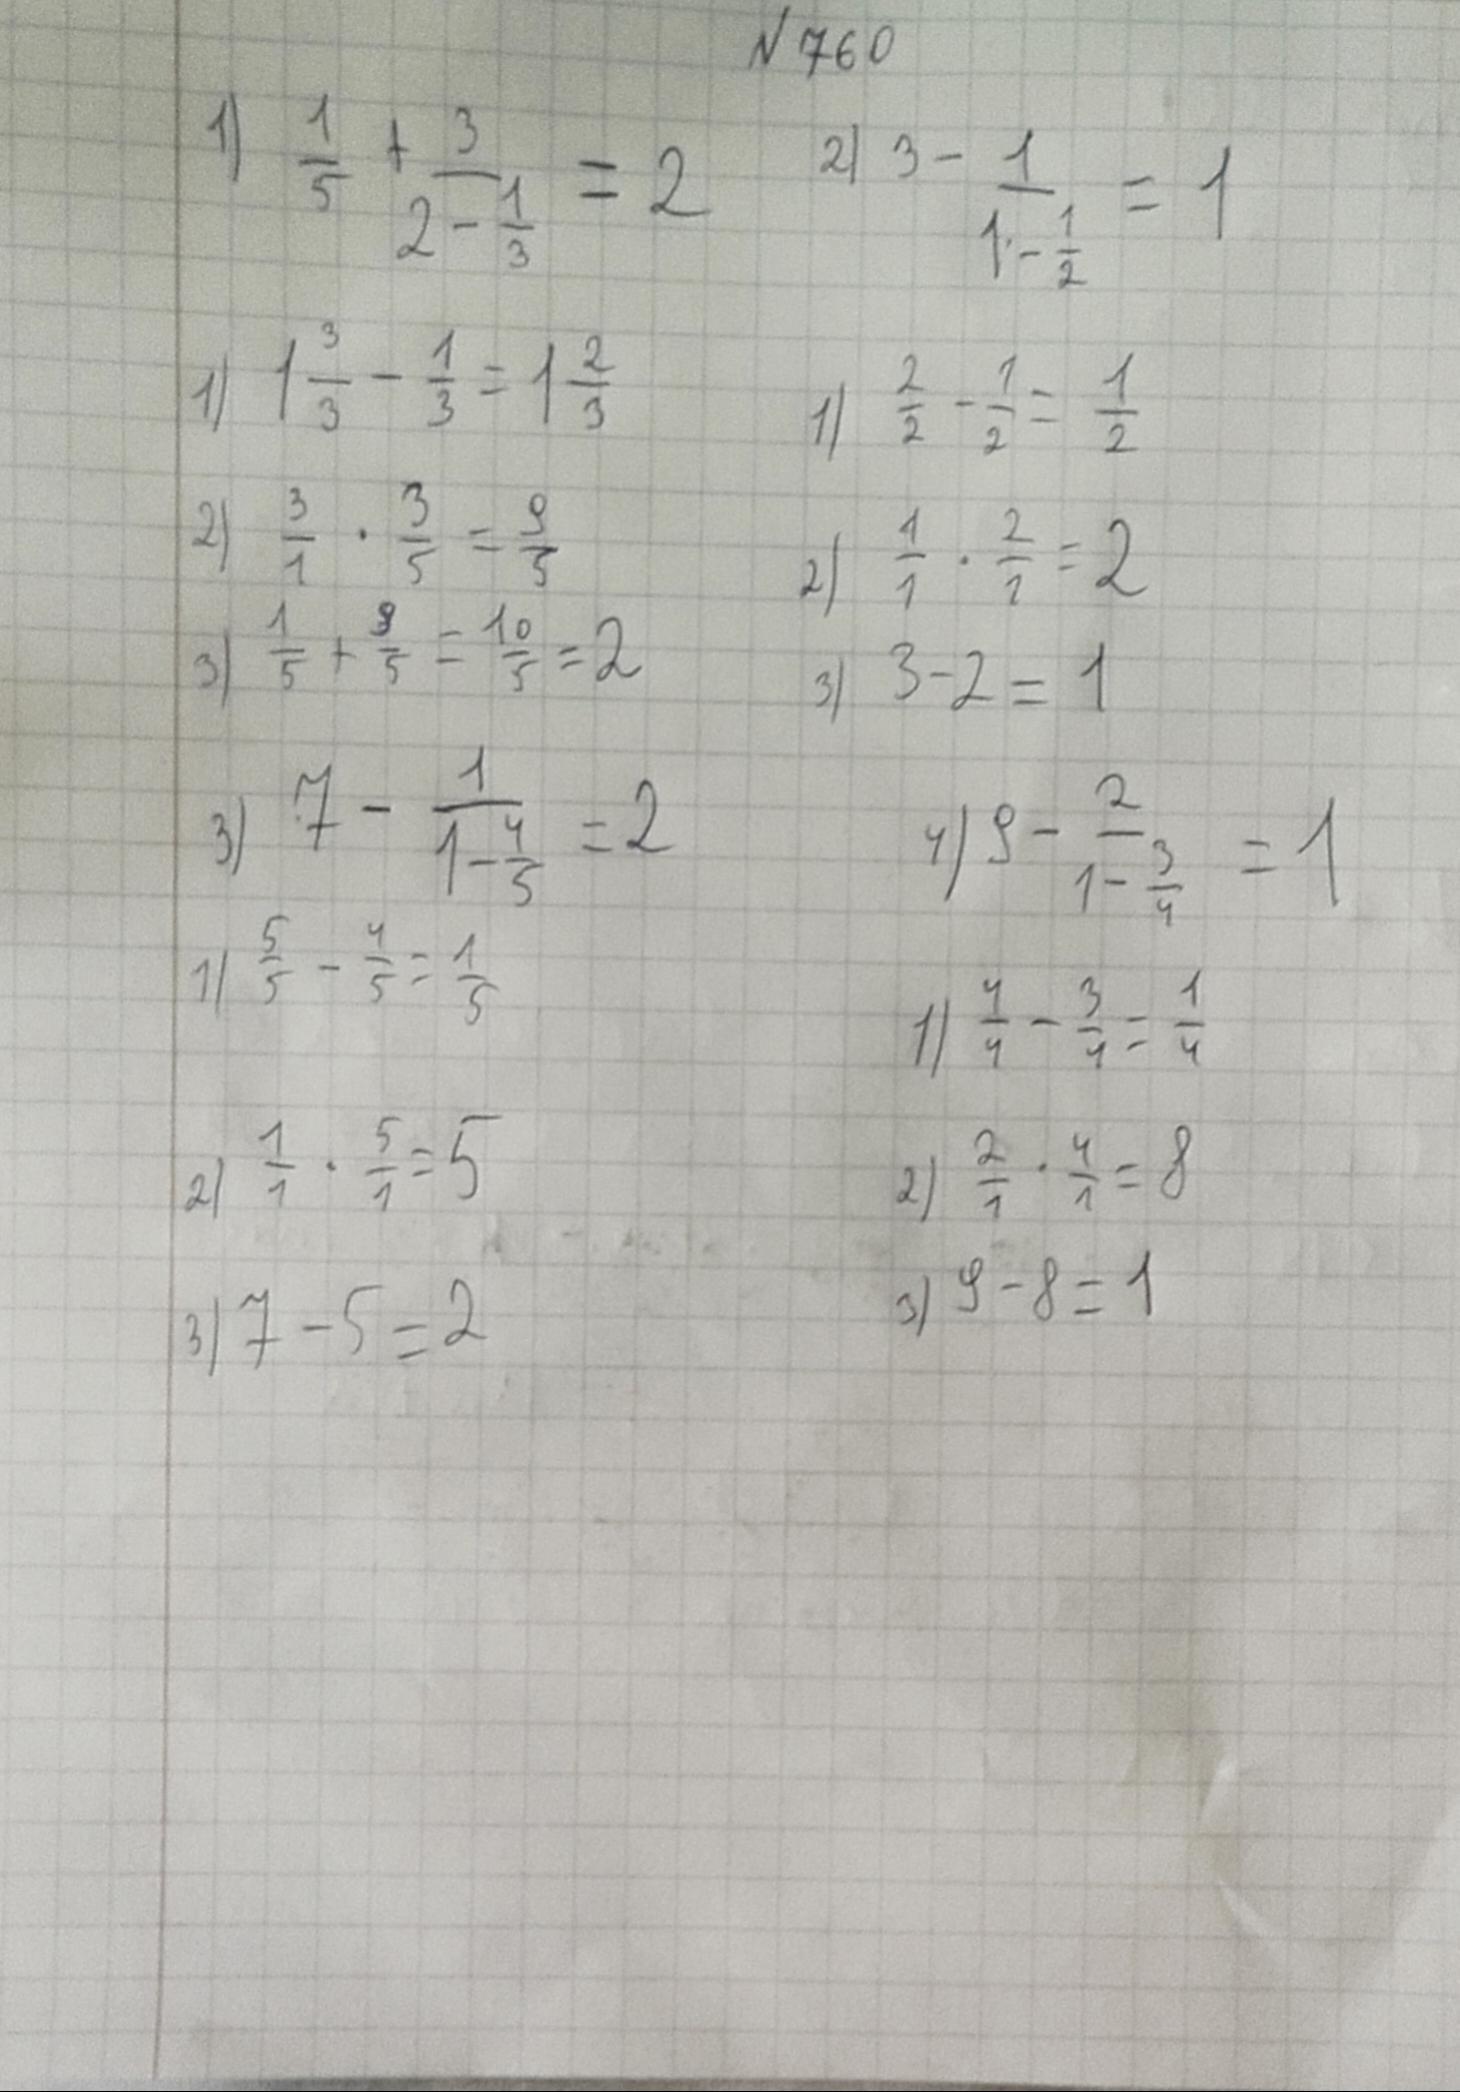 N 760
1) 1/5 + 3/(2 - 1/3) = 2
2) 3 - 1/(1 - 1/2) = 1
1) 1 3/3 - 1/3 = 1 2/3
2) 3/1 · 3/5 = 9/5
3) 1/5 + 9/5 = 10/5 = 2
1) 2/2 - 1/2 = 1/2
2) 1/1 · 2/1 = 2
3) 3 - 2 = 1
3) 7 - 1/(1 - 4/5) = 2
1) 5/5 - 4/5 = 1/5
2) 1/1 · 5/1 = 5
3) 7 - 5 = 2
4) 9 - 2/(1 - 3/4) = 1
1) 4/4 - 3/4 = 1/4
2) 2/1 · 4/1 = 8
3) 9 - 8 = 1